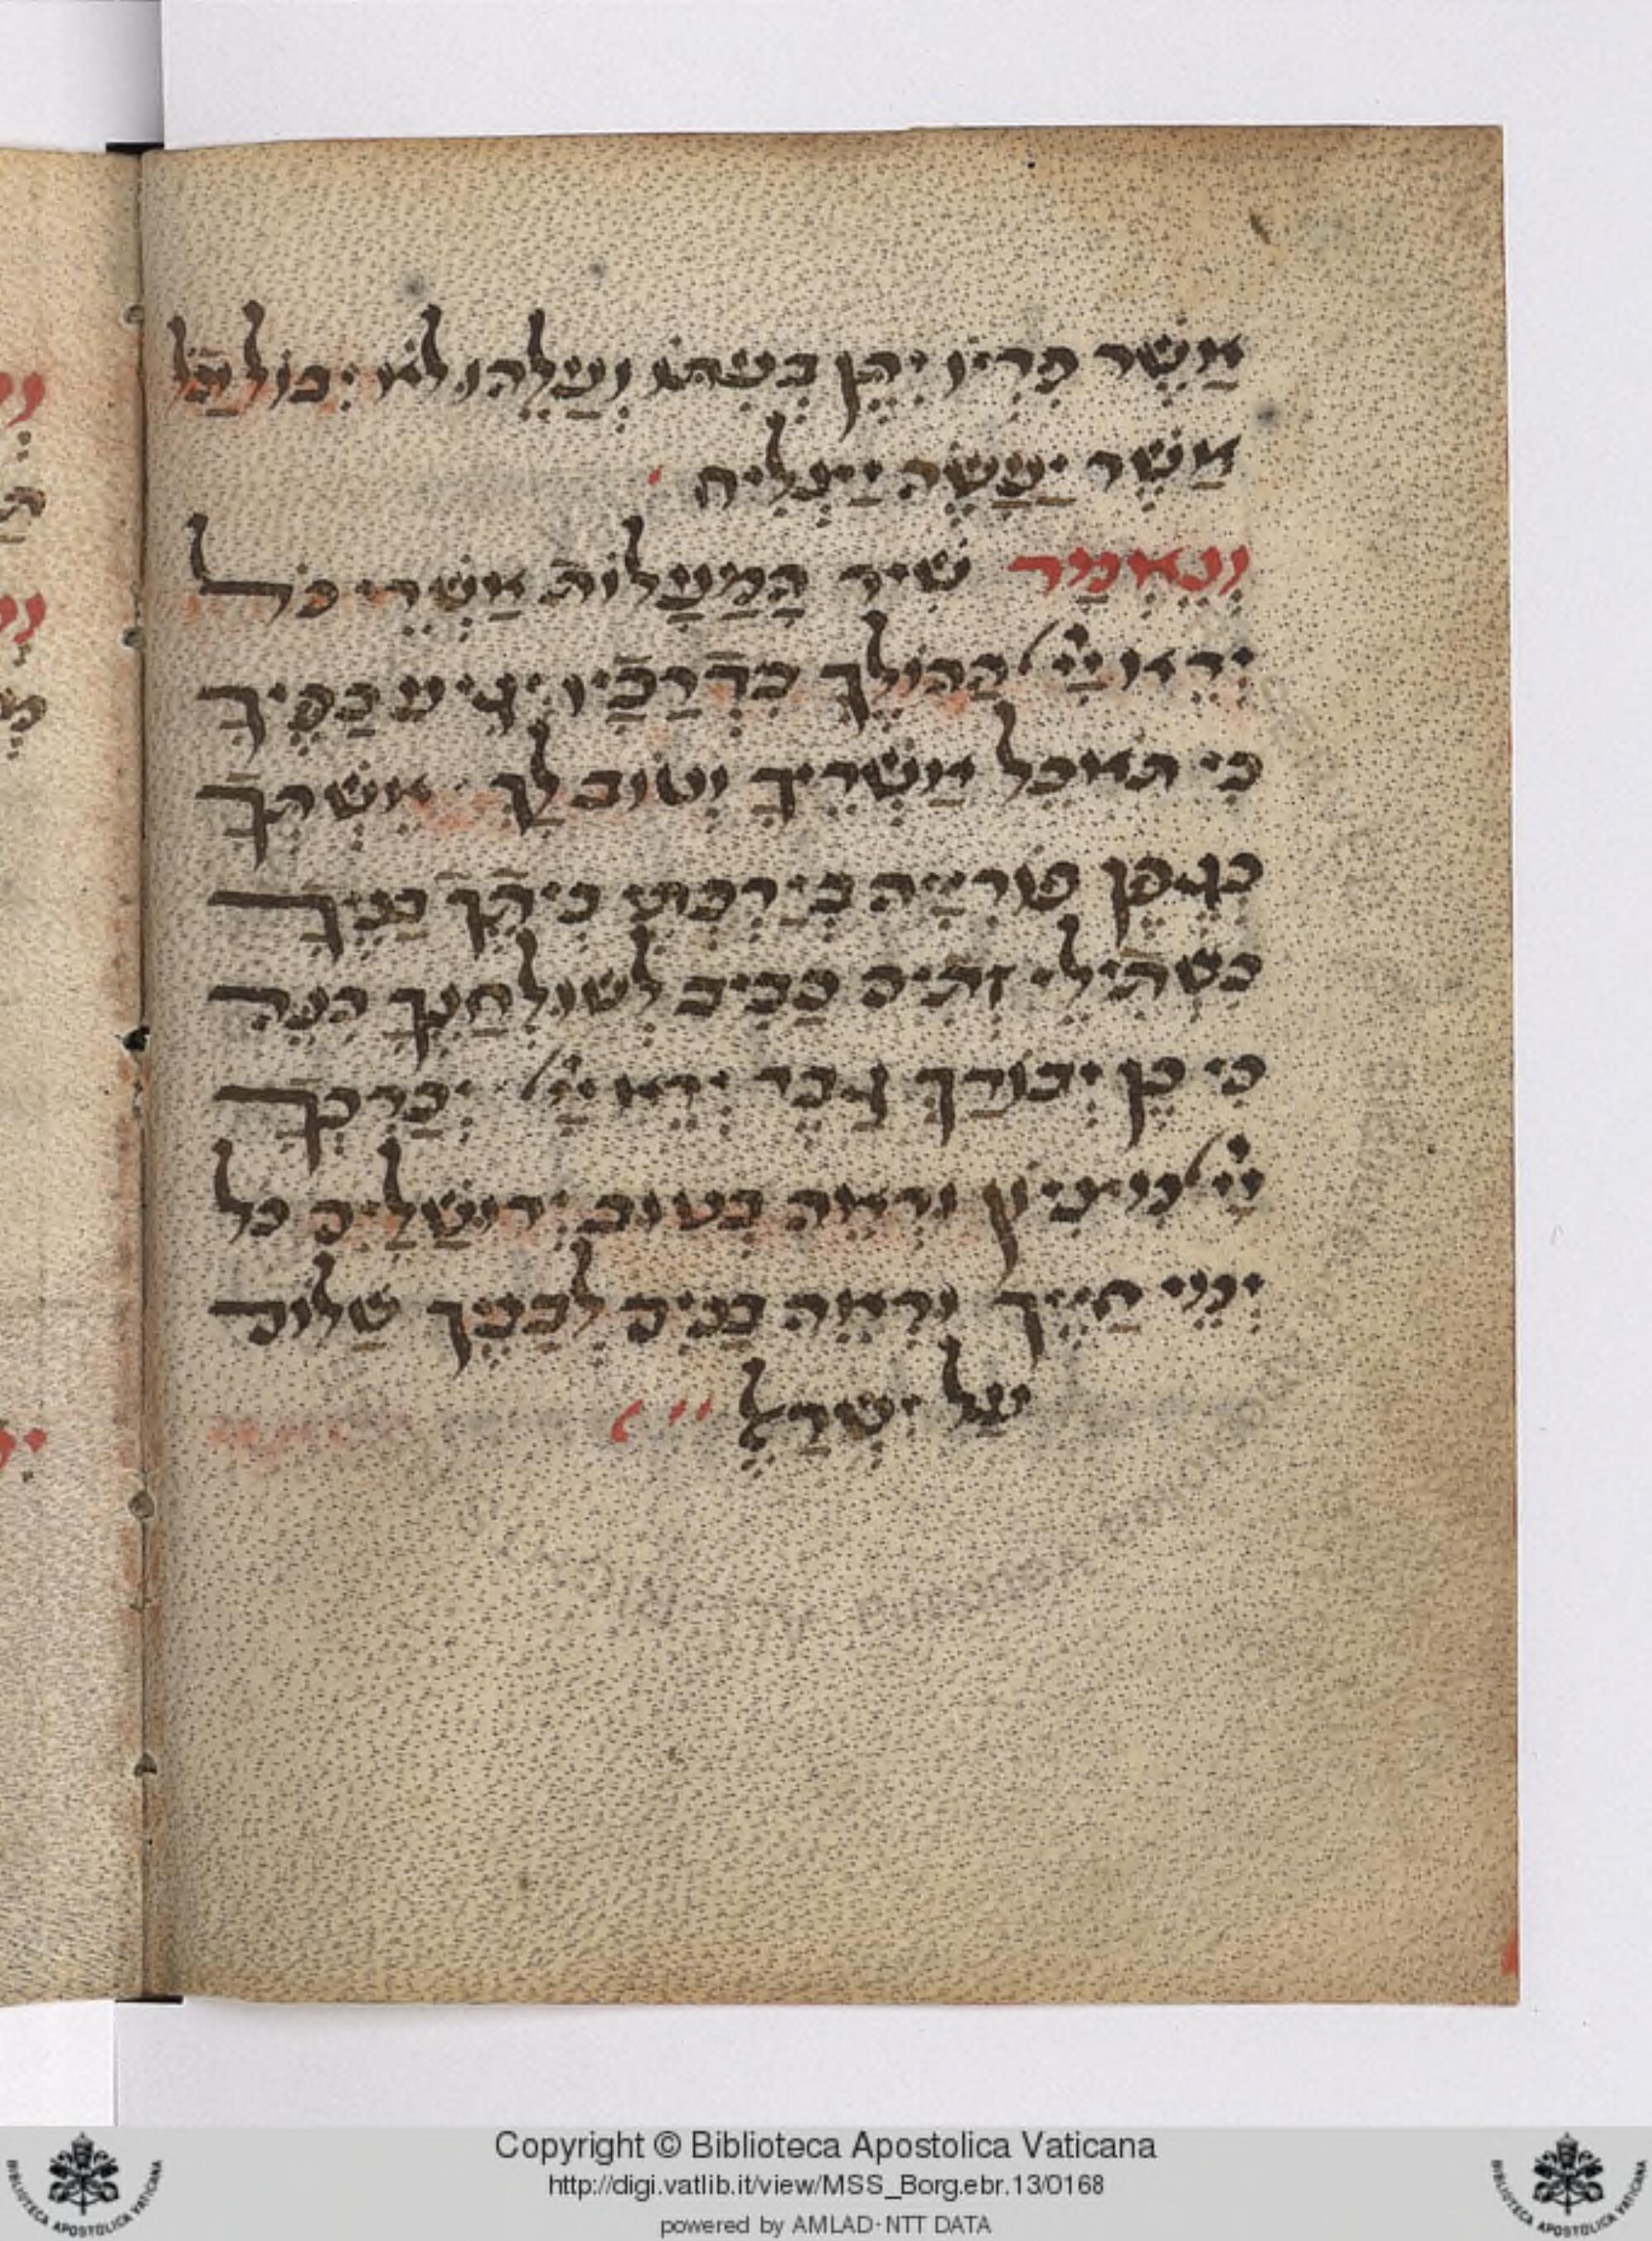 אֲשֶׁר פִּרְיוֹ יִתֵּן בְּעִתּוֹ וְעָלֵהוּ לֹא יִבּוֹל כֹּל
אֲשֶׁר יַעֲשֶׂה יַצְלִיחַ
וְנֶאֱמַר שִׁיר הַמַּעֲלוֹת אַשְׁרֵי כֹּל
יְרֵא יְיָ הַהוֹלֵךְ בִּדְרָכָיו יְגִיעַ כַּפֶּיךָ
כִּי תֹאכֵל אַשְׁרֶיךָ וְטוֹב לָךְ אִשְׁתְּךָ
כְּגֶפֶן פֹּרִיָּה בְּיַרְכְּתֵי בֵיתֶךָ בָּנֶיךָ
כִּשְׁתִילֵי זֵתִים סָבִיב לְשׁוּלְחָנֶךָ הִנֵּה
כִּי כֵן יְבוֹרַךְ גָּבֶר יְרֵא יְיָ יְבָרֶכְךָ
יְיָ מִצִּיּוֹן וּרְאֵה בְּטוּב יְרוּשָׁלַיִם כֹּל
יְמֵי חַיֶּיךָ וּרְאֵה בָנִים לְבָנֶיךָ שָׁלוֹם
עַל יִשְׂרָאֵל
Copyright © Biblioteca Apostolica Vaticana
http://digi.vatlib.it/view/MSS_Borg.ebr.13/0168
powered by AMLAD·NTT DATA
BIBLIOTECA APOSTOLICA VATICANA
BIBLIOTECA APOSTOLICA VATICANA